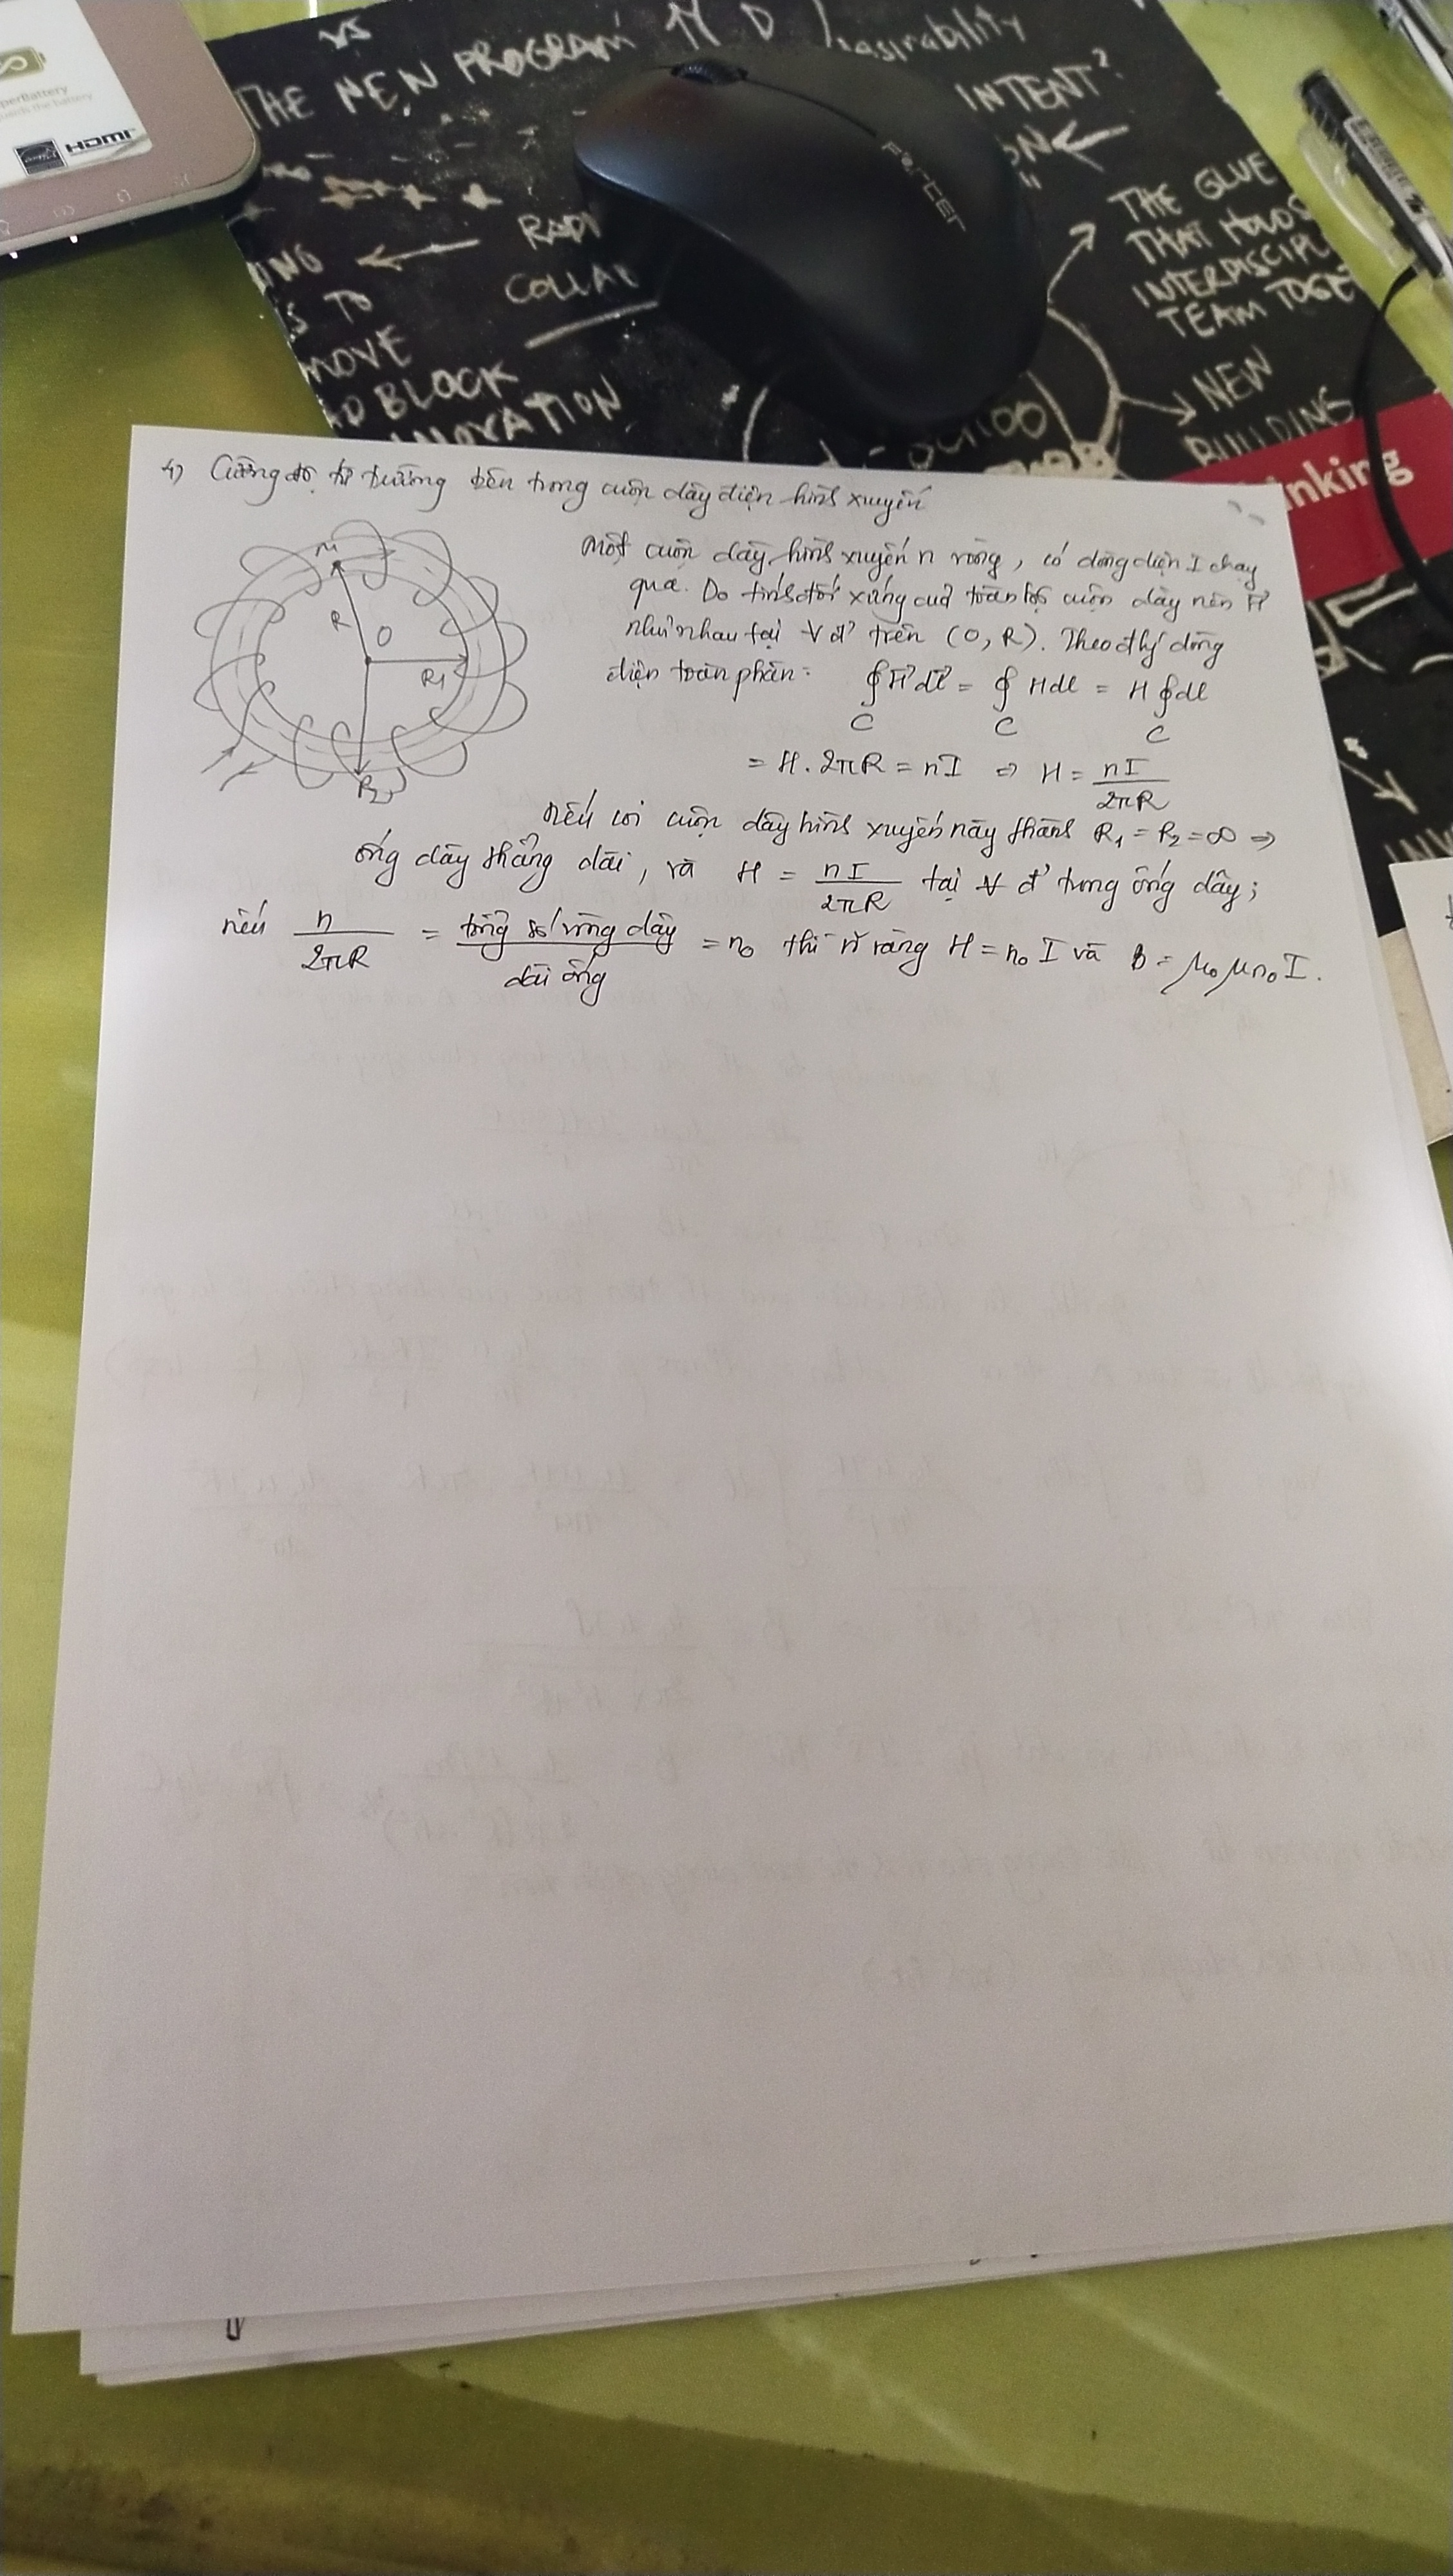 HDMI
VS
THE NEW PROGRAM
INTENT?
RADI
COLLA
S TO
MOVE
BLOCK
THE GLUE
THAT HOLDS
INTERDISCIPL
TEAM TOGE
NEW
BUILDING
inking
4) Cường độ từ trường bên trong cuộn dây điện hình xuyến
M
R
O
R₁
R₂
Một cuộn dây hình xuyến n vòng, có dòng điện I chạy
qua. Do tính đối xứng của toàn bộ cuộn dây nên H⃗
như nhau tại ∀ đ' trên (O, R). Theo đlý dòng
điện toàn phần: ∮_C H⃗ dl⃗ = ∮_C Hdl = H ∮_C dl
= H. 2πR = nI ⇒ H = nI / 2πR
Nếu coi cuộn dây hình xuyến này thành R₁ = R₂ = ∞ ⇒
ống dây thẳng dài, và H = nI / 2πR tại ∀ đ' trong ống dây;
nếu n / 2πR = tổng số vòng dây / dài ống = n₀ thì rõ ràng H = n₀ I và B = μ₀ μ n₀ I.